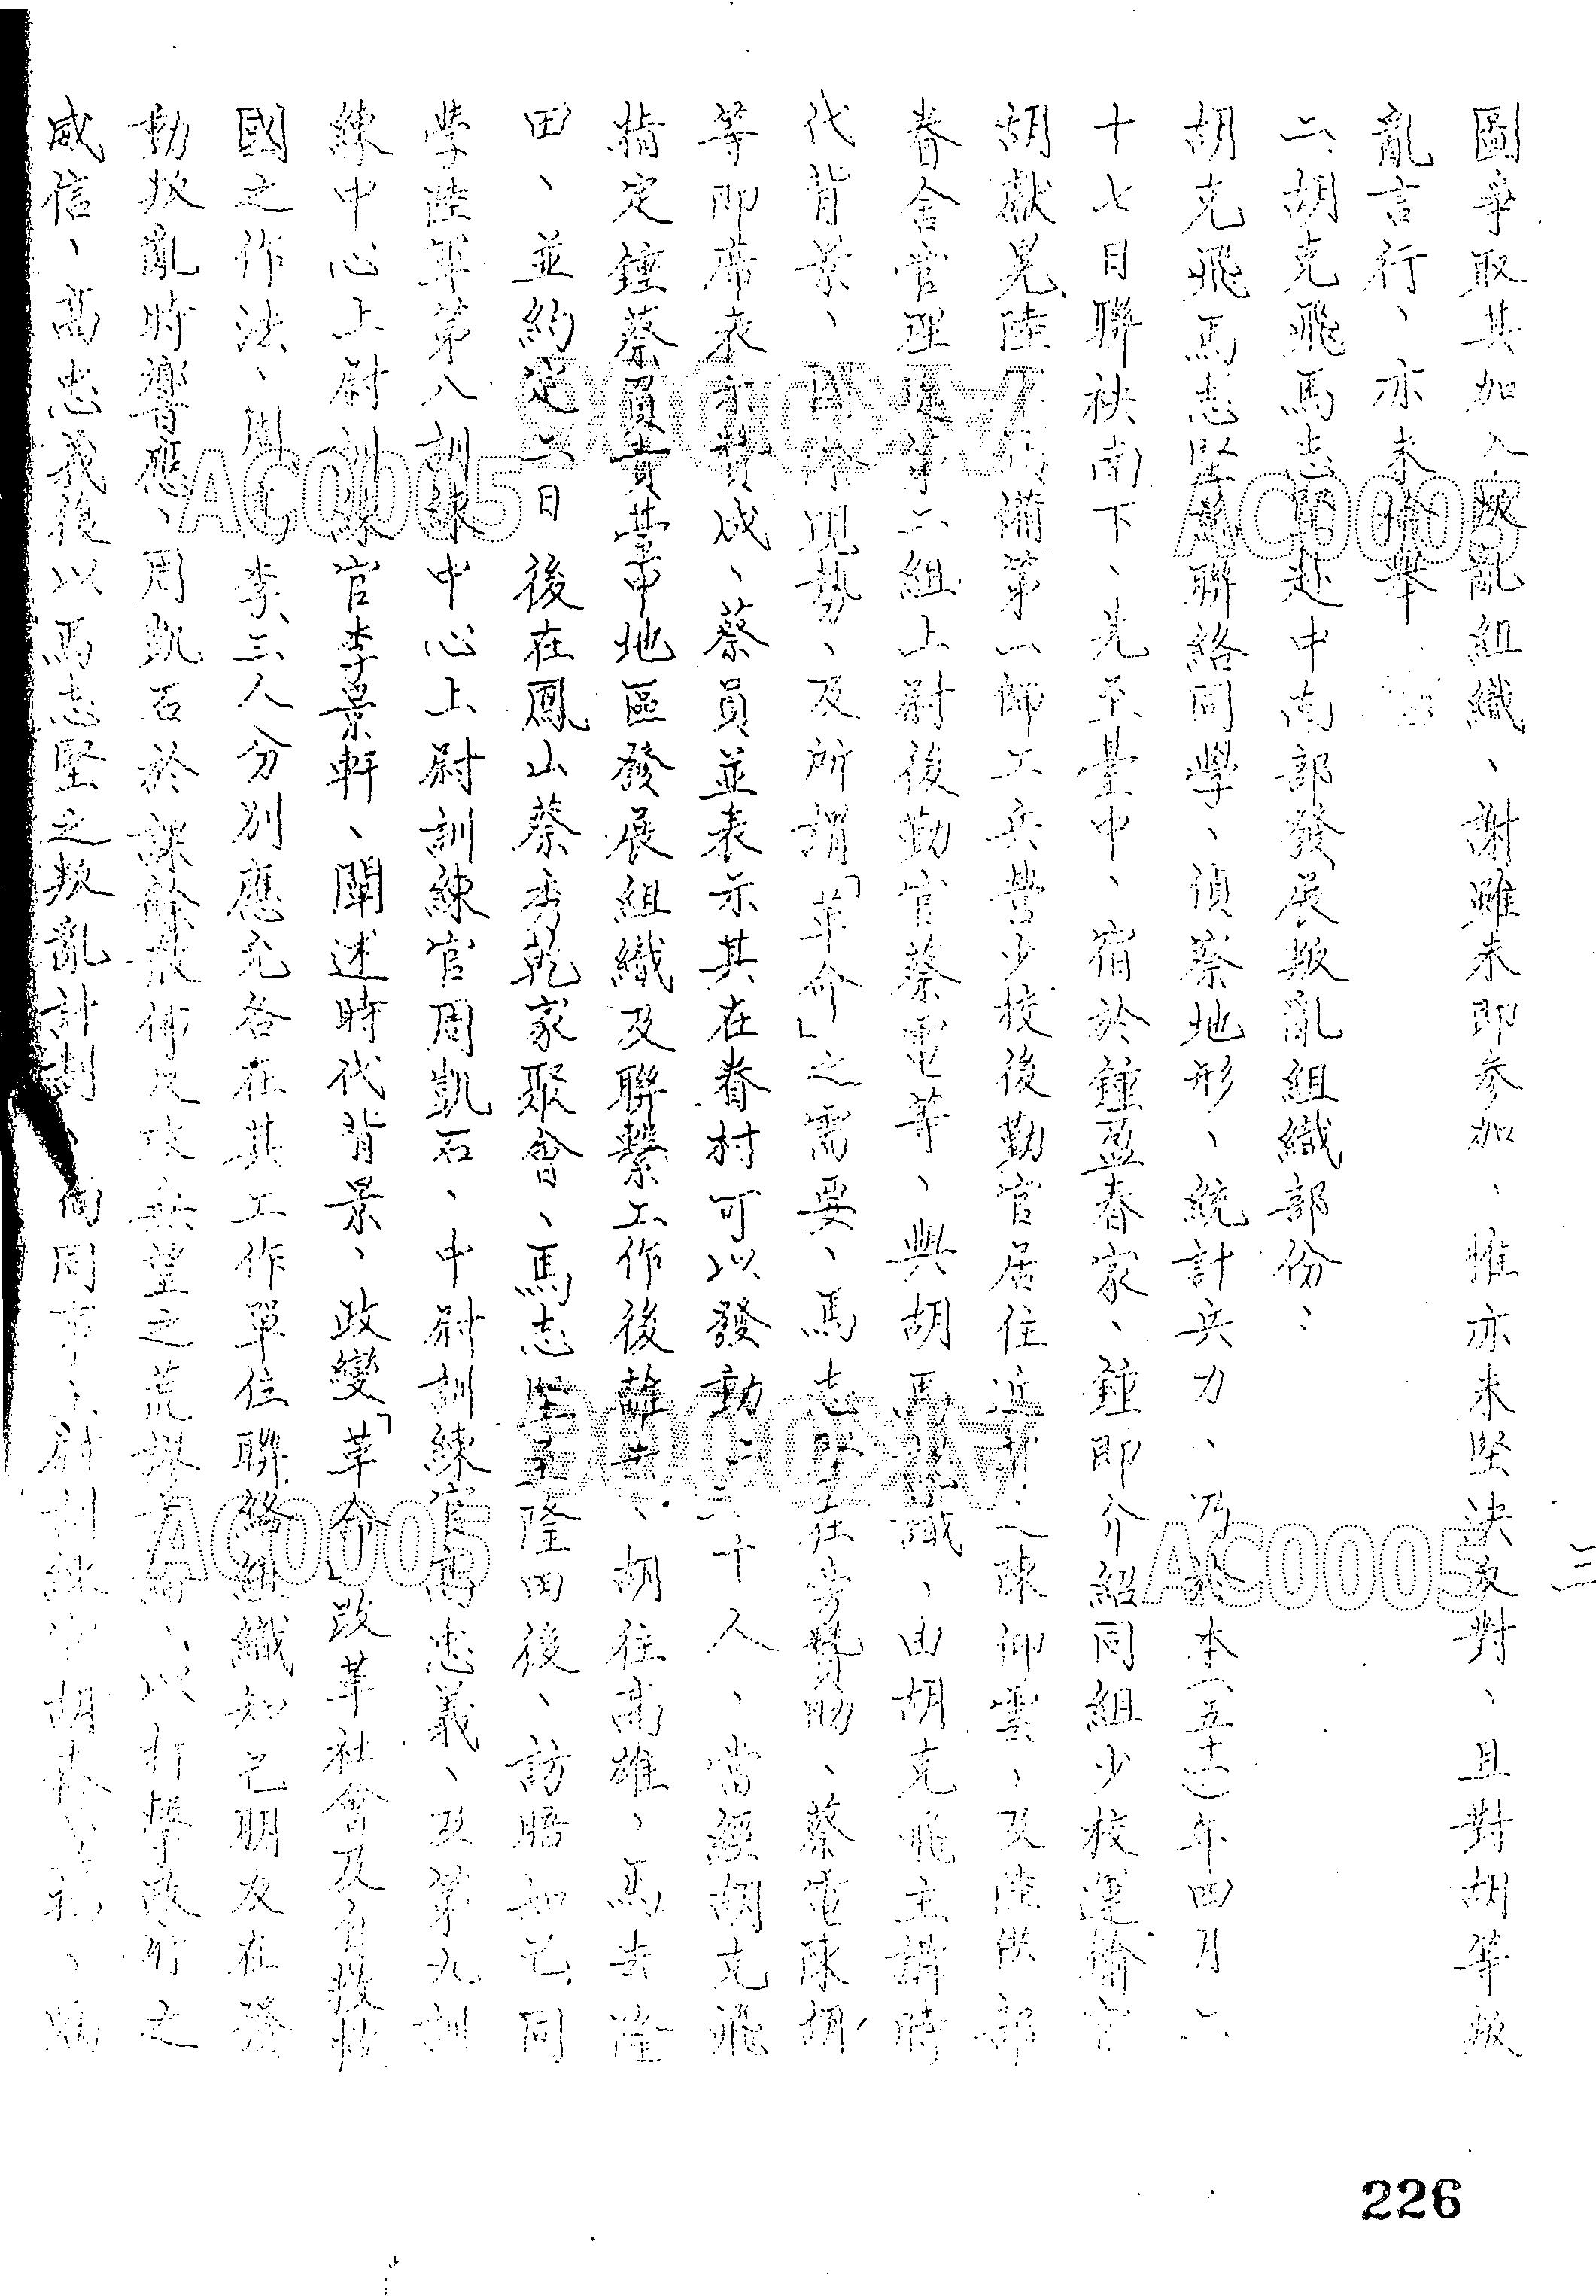 三
圖爭取其加入叛亂組織、謝雖未即參加、惟亦未堅決反對、且對胡等叛
亂言行、亦未檢舉
二、胡克飛馬志堅赴中南部發展叛亂組織部份：
胡克飛馬志堅為聯絡同學、偵察地形、統計兵力、乃於本(五十二)年四月二
十七日聯袂南下、先至臺中、宿於鍾盈春家、鍾即介紹同組少校運輸官
胡獻晃陸 備第一師工兵營少校後勤官居住近 之陳仰雲、及陸供部
眷舍管理 第二組上尉後勤官蔡電等、與胡馬 識、由胡克飛主講時
代背景、國際現勢、及所謂「革命」之需要、馬志堅在旁贊助、蔡電陳胡
等即席表示贊成、蔡員並表示其在眷村可以發動二三十人、當經胡克飛
指定鍾蔡 負責臺中地區發展組織及聯繫工作後離去、胡往高雄、馬去隆
田、並約定二日後在鳳山蔡秀乾家聚會、馬志堅至隆田後、訪晤知己同
學陸軍第八訓練中心上尉訓練官周凱石、中尉訓練官高忠義、及第九訓
練中心上尉訓練官李景軒、闡述時代背景、政變「革命」改革社會及自救救
國之作法、周高李三人分別應允各在其工作單位聯絡組織知己朋友在發
動叛亂時響應、周凱石於課餘散佈反攻無望之荒謬 、以打擊政府之
威信、高忠義後以馬志堅之叛亂計劃、向同事 尉訓練官胡 、